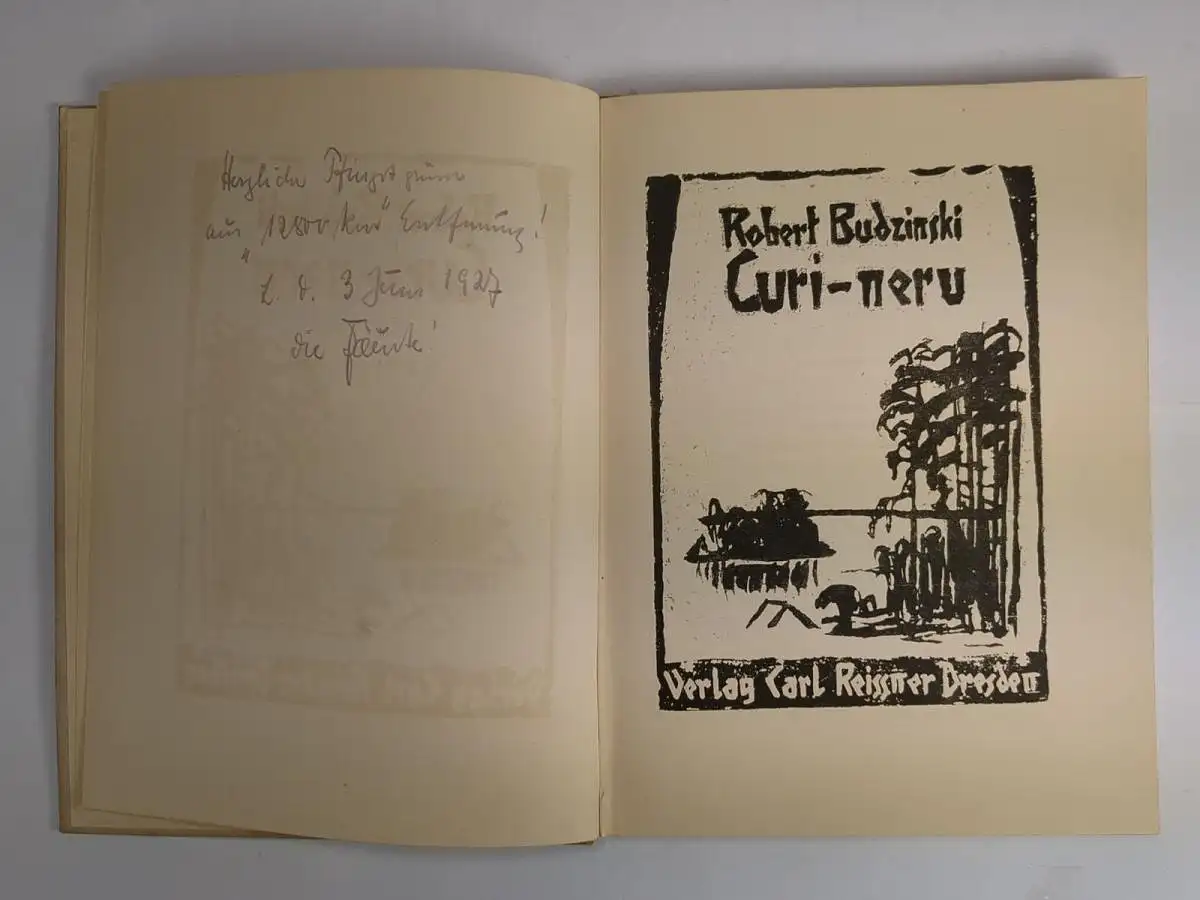 Herzliche Pfingstgrüsse
aus "12800 km" Entfernung!
d. 3 Juni 1927
die
Robert Budzinski
Curi-neru
Verlag Carl Reissner Dresden